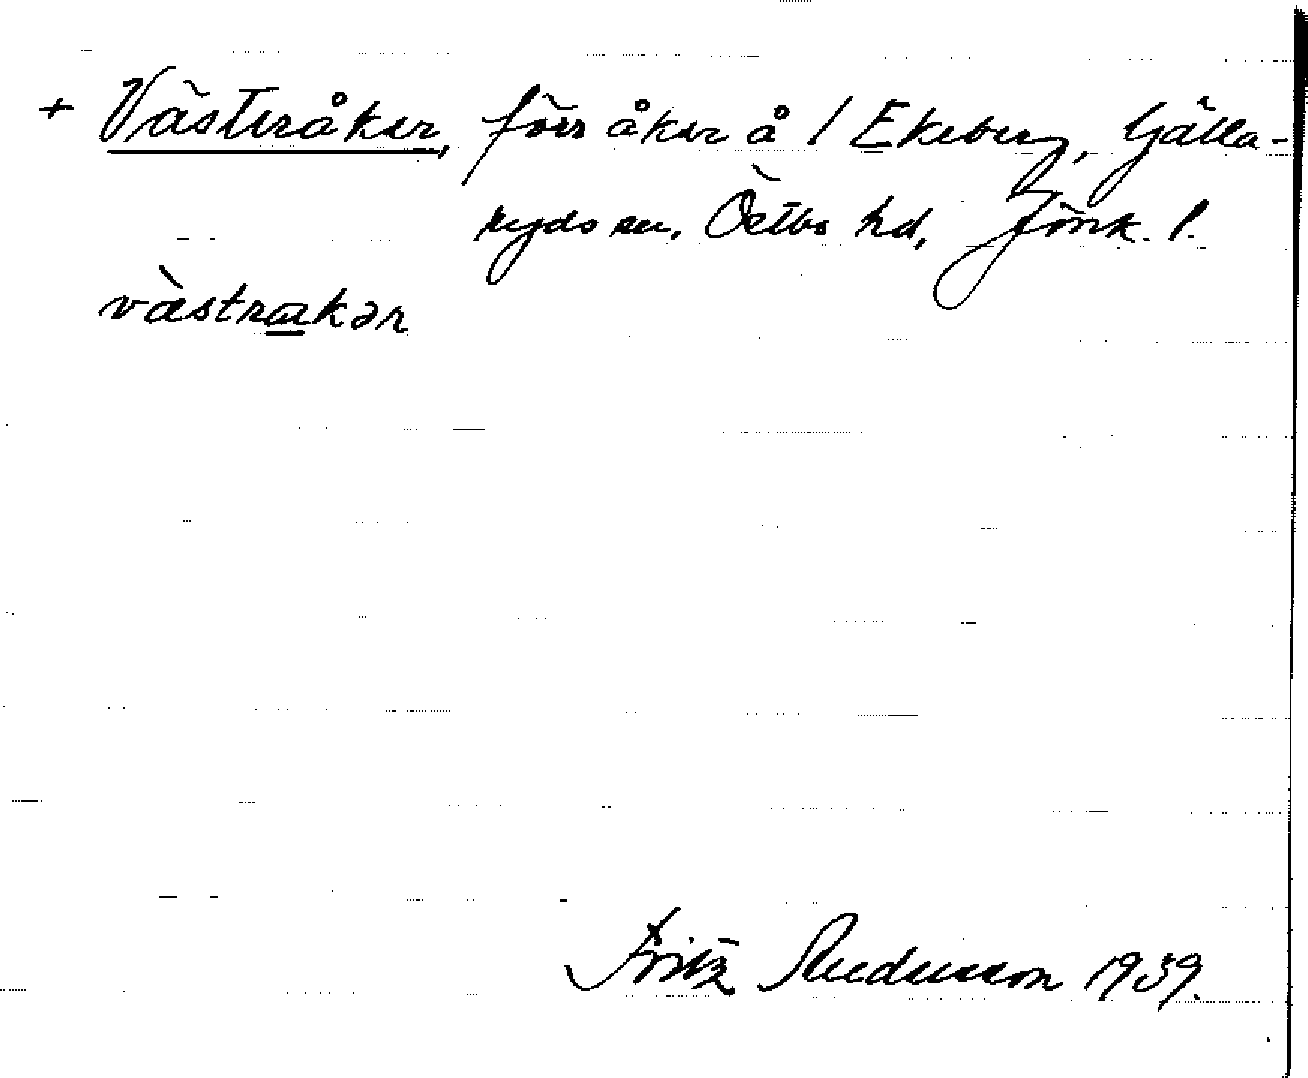 + Västeråker, förr åker å 1 Ekeberg, Gälla-
ryds sn, Östbo hd, Jönk. l.
västrakər
Fritz 1939.